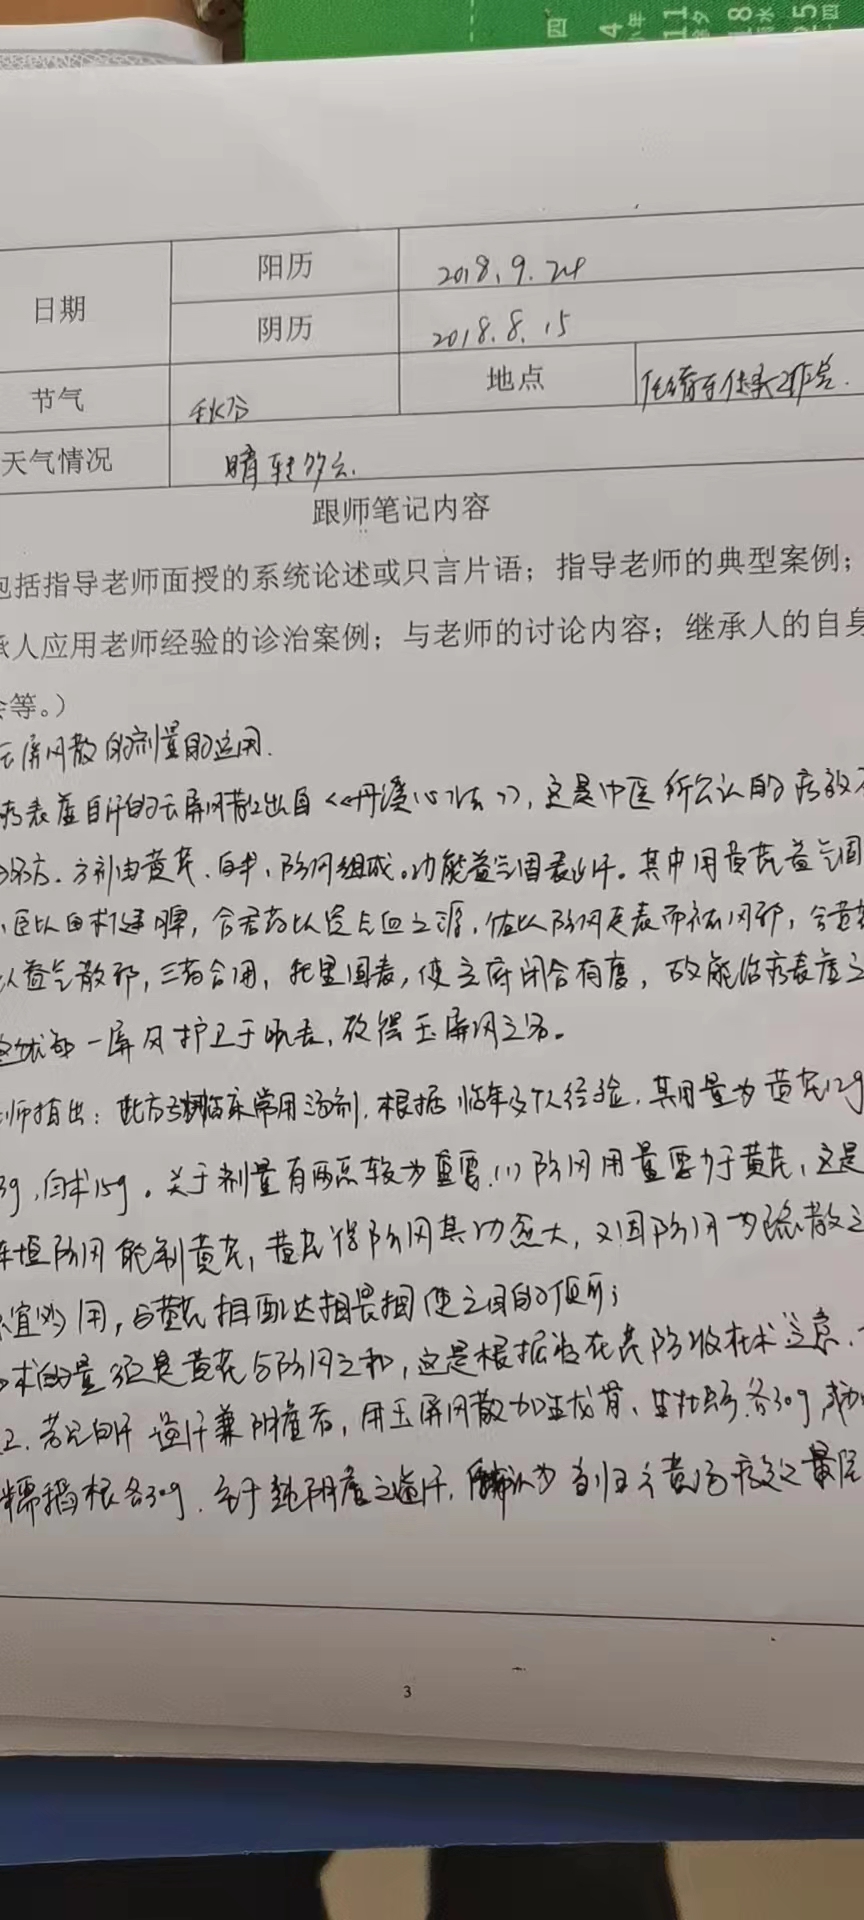 四
4
小年
11
除夕
18
水
25
四
日期 阳历 2018.9.24
阴历 2018.8.15
节气 秋分 地点 传承工作室.
天气情况 晴转多云.
跟师笔记内容
包括指导老师面授的系统论述或只言片语；指导老师的典型案例；
承人应用老师经验的诊治案例；与老师的讨论内容；继承人的自身
会等。）
玉屏风散的剂量的运用.
表虚自汗的玉屏风散出自《丹溪心法》，这是中医所公认的疗效
名方.方剂由黄芪、白术、防风组成。功能益气固表止汗。其中用黄芪益气固
臣以白术健脾，合君药以资气血之源，佐以防风走表而祛风邪，合黄芪
以益气散邪，三药合用，托里固表，使玄府闭合有度，故能治疗表虚之
一屏风护卫于肌表，故得玉屏风之名。
师指出：此方临床常用汤剂，根据临床及个人经验，其用量为黄芪12g
3g，白术15g。关于剂量有两点较为重要.(1)防风用量要少于黄芪，这是
垣防风能制黄芪，黄芪得防风其功愈大，又因防风为疏散之
宜少用，与黄芪相配达相畏相使之目的
术的量须是黄芪与防风之和，这是根据
若见自汗盗汗兼阴虚者，用玉屏风散加生龙骨、生牡蛎各30g
糯稻根各30g.至于纯阴虚之盗汗，当归六黄汤
3